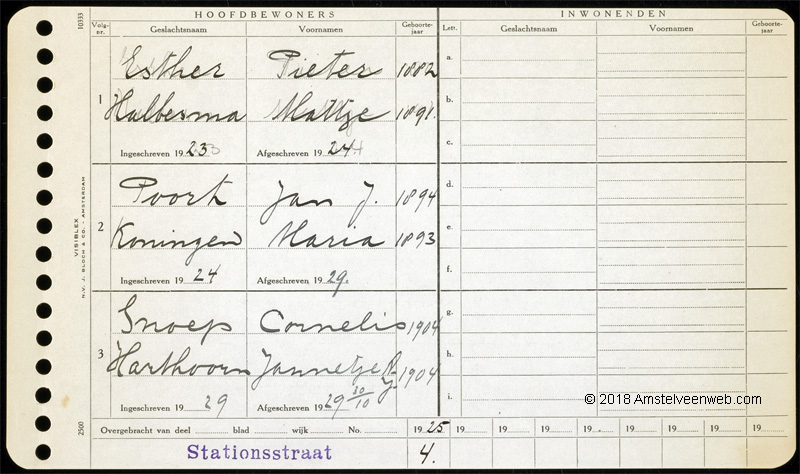 HOOFDBEWONERS INWONENDEN
Volg-nr. Geslachtsnaam Voornamen Geboorte-jaar Lett. Geslachtsnaam Voornamen Geboorte-jaar
10333
Esther Pieter 1882 a.
1 Halbesma Mattje 1891. b.
c.
Ingeschreven 19 23 Afgeschreven 19 24
Poort Jan J. 1894 d.
2 Koningen Maria 1893 e.
Ingeschreven 19 24 Afgeschreven 19 29. f.
VISIBLEX
N.V. J. BLOCH & CO. - AMSTERDAM
Snoep Cornelis 1904 g.
3 Harthoorn Jannetje A. J. 1904 h.
Ingeschreven 19 29 Afgeschreven 19 29 30/10 i.
© 2018 Amstelveenweb.com
2500
Overgebracht van deel blad wijk No. 19 25 19 19 19 19 19 19 19
Stationsstraat 4.